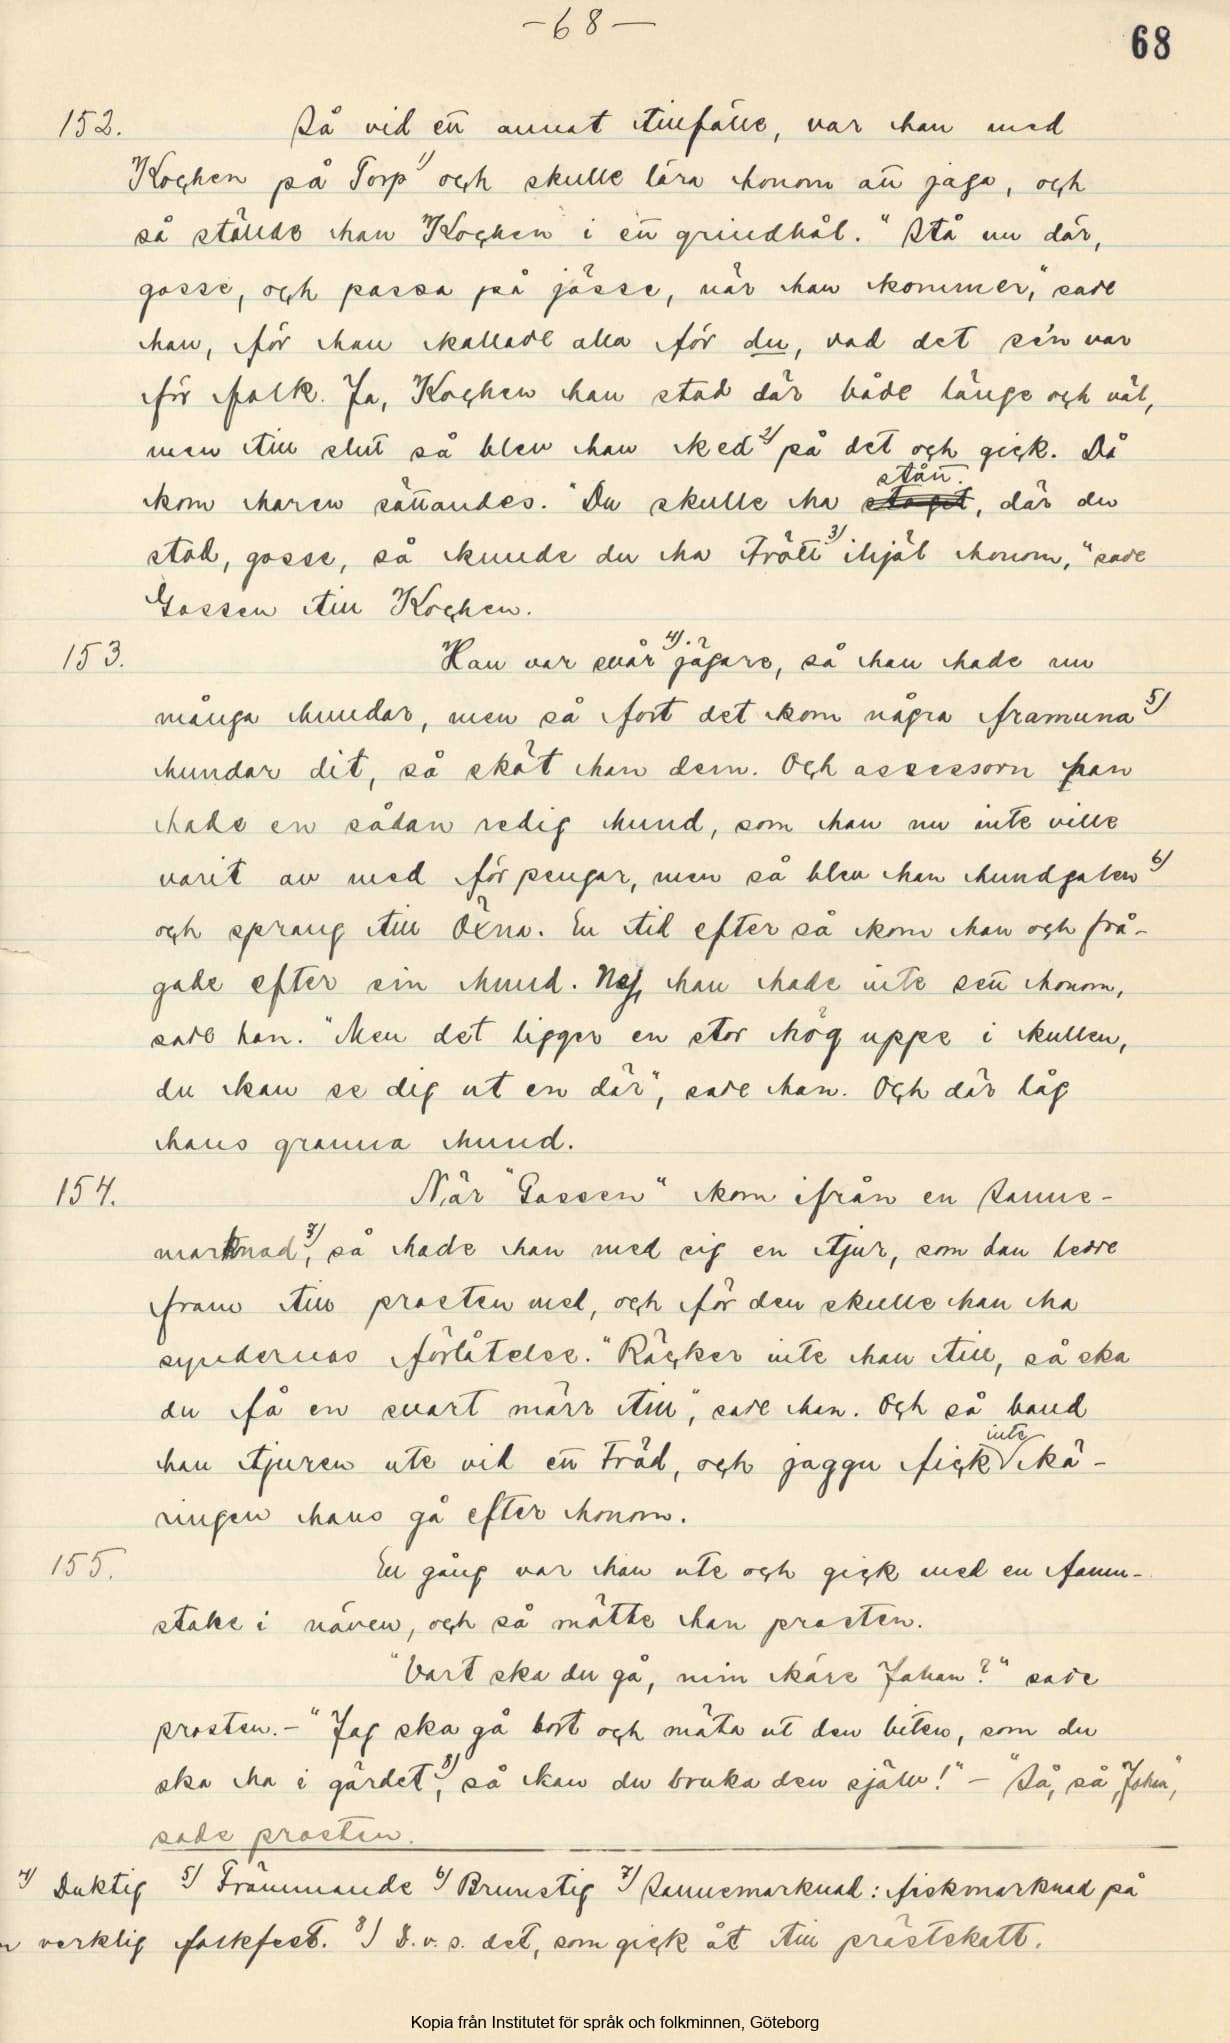 —68—
68
152. Så vid ett annat tillfälle, var han med
Kocken på Torp 1) och skulle lära honom att jaga, och
så ställde han Kocken i ett grindhål. "Stå nu där,
gosse, och passa på jösse, när han kommer," sade
han, för han kallade alla för du, vad det sén var
för folk. Ja, Kocken han stod där både länge och väl,
men till slut så blev han ked 2) på det och gick. Då
stått.
kom haren sättandes. "Du skulle ha staget, där du
stod, gosse, så kunde du ha trött 3) ihjäl honom," sade
Gossen till Kocken.
153. Han var svår 4) jägare, så han hade nu
många hundar, men så fort det kom några framuna 5)
hundar dit, så sköt han dem. Och assessorn han
hade en sådan redig hund, som han nu inte ville
varit av med för pengar, men så blev han hundgalen 6)
och sprang till Öxna. En tid efter så kom han och frå-
gade efter sin hund. Nej, han hade inte sett honom,
sade han. "Men det ligger en stor hög uppe i kullen,
du kan se dig ut en där", sade han. Och där låg
hans granna hund.
154. När "Gossen" kom ifrån en Sanne-
marknad 7), så hade han med sig en tjur, som han ledde
fram till prosten med, och för den skulle han ha
syndernas förlåtelse. "Räcker inte han till, så ska
du få en svart märr till", sade han. Och så band
inte
han tjuren ute vid ett träd, och jaggu fick kä-
ringen hans gå efter honom.
155. En gång var han ute och gick med en famn-
stake i näven, och så mötte han prosten.
"Vart ska du gå, min käre Johan?" sade
prosten. — "Jag ska gå bort och mäta ut den biten, som du
ska ha i gärdet 8), så kan du bruka den själv!" — "Så, så, Johan",
sade prosten.
4) Duktig 5) Främmande 6) Brunstig 7) Sannemarknad: fiskmarknad på
verklig folkfest. 8) D.v.s. det, som gick åt till prästskatt.
Kopia från Institutet för språk och folkminnen, Göteborg